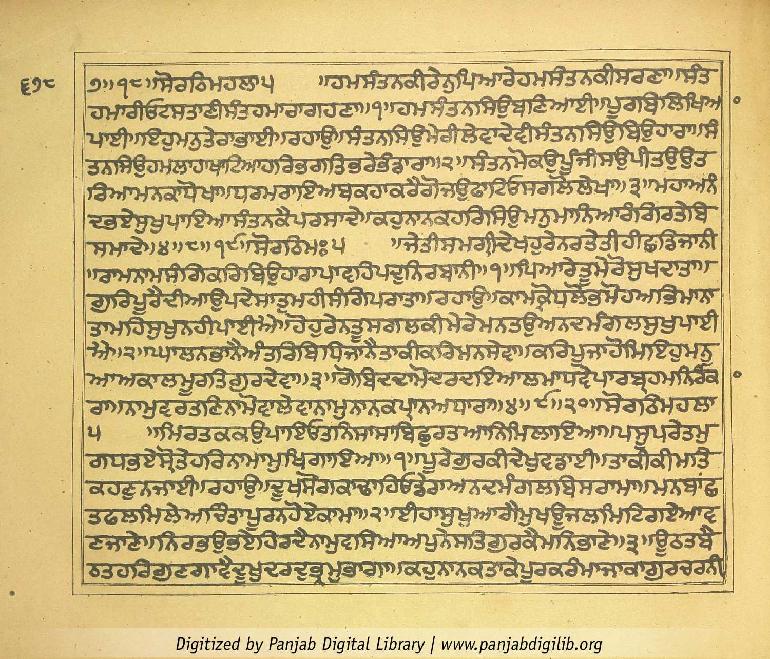 ੬੧੮
੭॥੧੮॥ਸੋਰਠਿਮਹਲਾ੫ ॥ਹਮਸੰਤਨਕੀਰੇਨੁਪਿਆਰੇਹਮਸੰਤਨਕੀਸਰਣਾ॥ਸੰਤ
ਹਮਾਰੀਓਟਸਤਾਣੀਸੰਤਹਮਾਰਾਗਹਣਾ॥੧॥ਹਮਸੰਤਨਸਿਉਬਣਿਆਈ॥ਪੂਰਬਿਲਿਖਿਆ
ਪਾਈ॥ਇਹੁਮਨੁਤੇਰਾਭਾਈ॥ਰਹਾਉ॥ਸੰਤਨਸਿਉਮੇਰੀਲੇਵਾਦੇਵੀਸੰਤਨਸਿਉਬਿਉਹਾਰਾ॥ਸੰ
ਤਨਸਿਉਹਮਲਾਹਾਖਾਟਿਆਹਰਿਭਗਤਿਭਰੇਭੰਡਾਰਾ॥੨॥ਸੰਤਨਮੋਕਉਪੂੰਜੀਸਉਪੀਤਉਉਤ
ਰਿਆਮਨਕਾਧੋਖਾ॥ਧਰਮਰਾਇਅਬਕਹਾਕਰੈਗੋਜਉਫਾਟਿਓਸਗਲੋਲੇਖਾ॥੩॥ਮਹਾਅਨੰ
ਦਭਏਸੁਖੁਪਾਇਆਸੰਤਨਕੈਪਰਸਾਦੇ॥ਕਹੁਨਾਨਕਹਰਿਸਿਉਮਨੁਮਾਨਿਆਰੰਗਿਰਤੇਬਿ
ਸਮਾਦੇ॥੪॥੮॥੧੯॥ਸੋਰਠਿਮਃ੫ ॥ਜੇਤੀਸਮਗ੍ਰੀਦੇਖਹੁਰੇਨਰਤੇਤੀਹੀਛਡਿਜਾਨੀ
॥ਰਾਮਨਾਮਸੰਗਿਕਰਿਬਿਉਹਾਰਾਪਾਵਹਿਪਦੁਨਿਰਬਾਨੀ॥੧॥ਪਿਆਰੇਤੂਮੇਰੋਸੁਖਦਾਤਾ॥
ਗੁਰਿਪੂਰੈਦੀਆਉਪਦੇਸਾਤੁਮਹੀਸੰਗਿਪਰਾਤਾ॥ਰਹਾਉ॥ਕਾਮਕ੍ਰੋਧਲੋਭਮੋਹਅਭਿਮਾਨਾ
ਤਾਮਹਿਸੁਖੁਨਹੀਪਾਈਐ॥ਹੋਹੁਰੇਨਤੂਸਗਲਕੀਮੇਰੇਮਨਤਉਅਨਦਮੰਗਲਸੁਖੁਪਾਈ
ਐ॥੨॥ਘਾਲਨਭਾਨੈਅੰਤਰਿਬਿਧਿਜਾਨੈਤਾਕੀਕਰਿਮਨਸੇਵਾ॥ਕਰਿਪੂਜਾਹੋਮਿਇਹੁਮਨੂ
ਆਅਕਾਲਮੂਰਤਿਗੁਰਦੇਵਾ॥੩॥ਗੋਬਿਦਦਾਮੋਦਰਦਇਆਲਮਾਧਵੇਪਾਰਬ੍ਰਹਮਨਿਰੰਕਾ
ਰਾ॥ਨਾਮੁਵਰਤਣਿਨਾਮੋਵਾਲੇਵਾਨਾਮੁਨਾਨਕਪ੍ਰਾਨਅਧਾਰਾ॥੪॥੯॥੨੦॥ਸੋਰਠਿਮਹਲਾ
੫ ॥ਮਿਰਤਕਕਉਪਾਇਓਤਨਿਸਾਸਾਬਿਛੁਰਤਆਨਿਮਿਲਾਇਆ॥ਪਸੂਪਰੇਤਮੁ
ਗਧਭਏਸ੍ਰੋਤੇਹਰਿਨਾਮਾਮੁਖਿਗਾਇਆ॥੧॥ਪੂਰੇਗੁਰਕੀਦੇਖੁਵਡਾਈ॥ਤਾਕੀਕੀਮਤਿ
ਕਹਣੁਨਜਾਈ॥ਰਹਾਉ॥ਦੂਖਸੋਗਕਾਢਾਹਿਓਡੇਰਾਅਨਦਮੰਗਲਬਿਸਰਾਮਾ॥ਮਨਬਾਂਛ
ਤਫਲਮਿਲੇਅਚਿੰਤਾਪੂਰਨਹੋਏਕਾਮਾ॥੨॥ਈਹਾਸੁਖੁਆਗੈਮੁਖਊਜਲਮਿਟਿਗਏਆਵ
ਣਜਾਣੇ॥ਨਿਰਭਉਭਏਹਿਰਦੈਨਾਮੁਵਸਿਆਅਪੁਨੇਸਤਿਗੁਰਕੈਮਨਿਭਾਣੇ॥੩॥ਊਠਤਬੈ
ਠਤਹਰਿਗੁਣਗਾਵੈਦੂਖੁਦਰਦੁਭ੍ਰਮੁਭਾਗਾ॥ਕਹੁਨਾਨਕਤਾਕੇਪੂਰਕਰੰਮਾਜਾਕਾਗੁਰਚਰਨੀ
Digitized by Panjab Digital Library | www.panjabdigilib.org